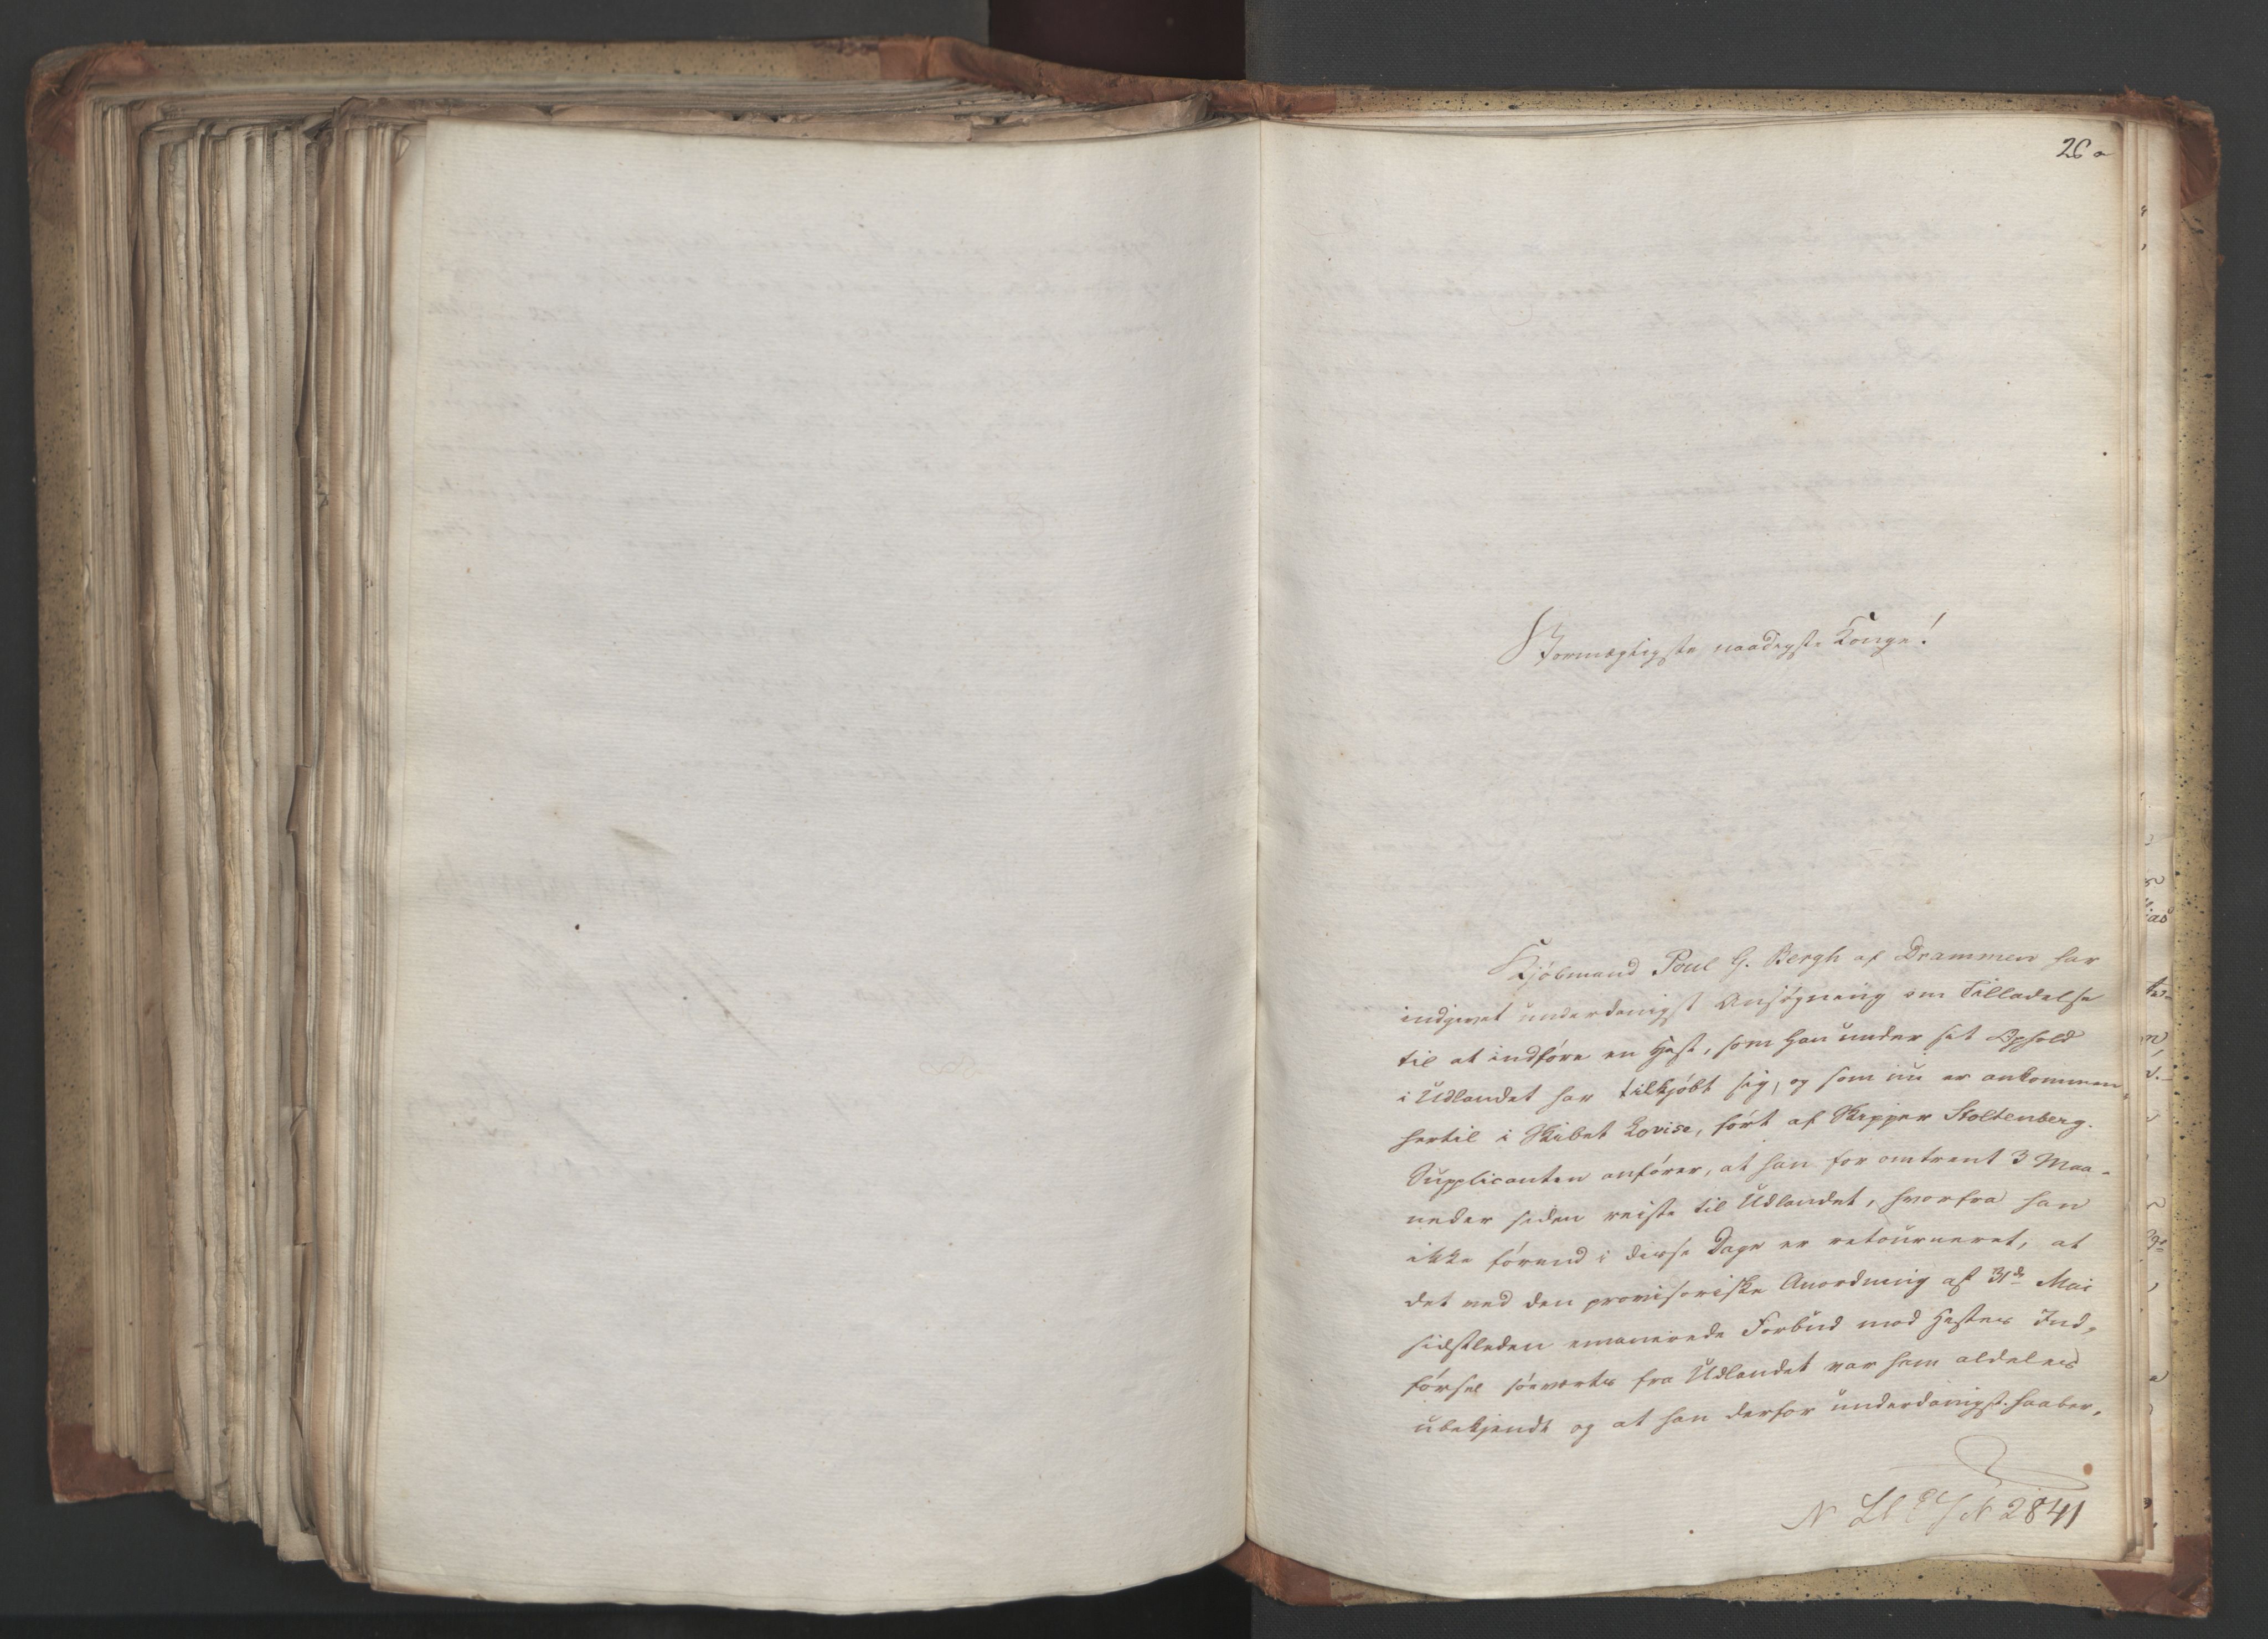 26 a
Stormægtigste, naadigste Konge!
Kjöbmand Poul G. Bergh af Drammen har
indgivet underdanigst Ansögning om Tilladelse
til at indföre en Hest, som han under sit Ophold
i Udlandet har tilkjöbt sig, og som nu er ankommen
hertil i Skibet Lovise, fört af Skipper Stoltenberg.
Supplicanten anförer, at han for omtrent 3 Maa-
neder siden reiste til Udlandet, hvorfra han
ikke förend i disse Dage er retourneret, at
det ved den provisoriske Anordning af 31de Mai
sidstleden emanerede Forbud mod Hestes Ind-
försel söeverts fra Udlandet var ham aldeles
ubekjendt og at han derfor underdanigst haaber,
2841